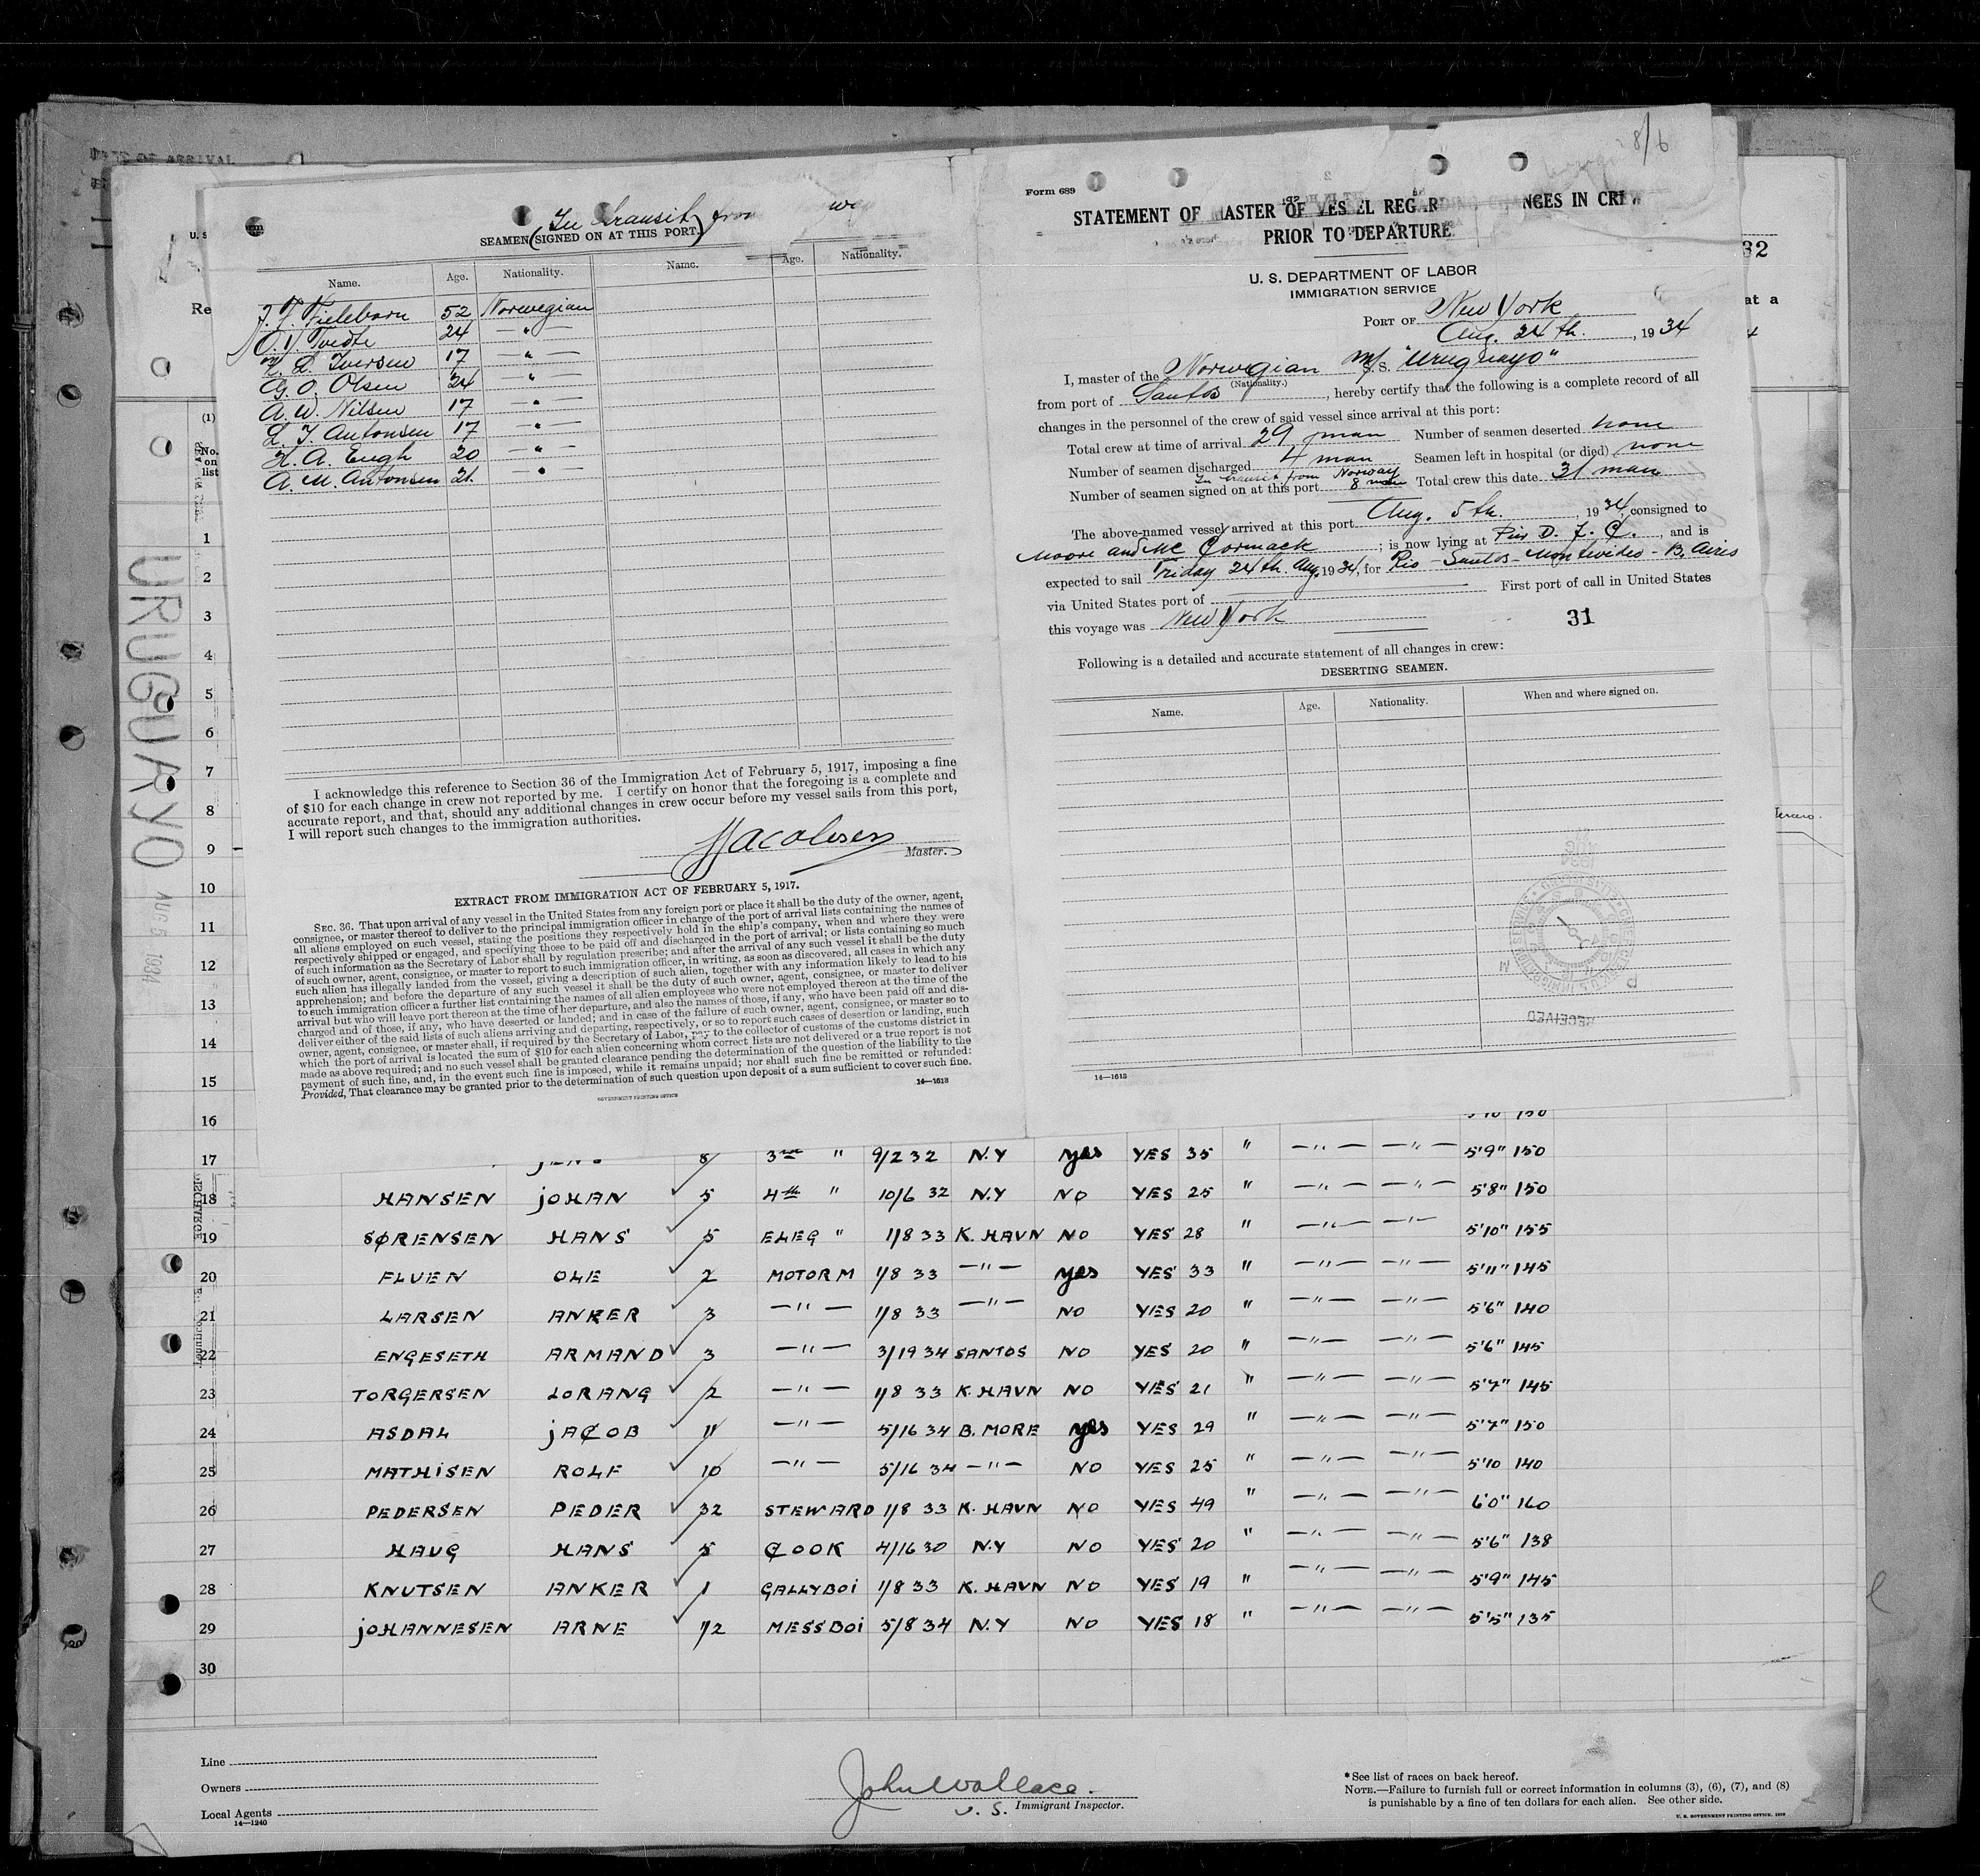 8/6
(In transit) from
SEAMEN (SIGNED ON AT THIS PORT.)
Name. Age. Nationality. Name. Age. Nationality.
52 Norwegian
O. Tvedte 24 — " —
Iversen 17 — " —
G. O. Olsen 24 — " —
A. W. Nilsen 17 — " —
L. T. Antonsen 17 — " —
H. A. Engh 20 — " —
A. M. Antonsen 21. — " —
I acknowledge this reference to Section 36 of the Immigration Act of February 5, 1917, imposing a fine
of $10 for each change in crew not reported by me. I certify on honor that the foregoing is a complete and
accurate report, and that, should any additional changes in crew occur before my vessel sails from this port,
I will report such changes to the immigration authorities.
Jacobsen
Master.
EXTRACT FROM IMMIGRATION ACT OF FEBRUARY 5, 1917.
SEC. 36. That upon arrival of any vessel in the United States from any foreign port or place it shall be the duty of the owner, agent,
consignee, or master thereof to deliver to the principal immigration officer in charge of the port of arrival lists containing the names of
all aliens employed on such vessel, stating the positions they respectively hold in the ship's company, when and where they were
respectively shipped or engaged, and specifying those to be paid off and discharged in the port of arrival; or lists containing so much
of such information as the Secretary of Labor shall by regulation prescribe; and after the arrival of any such vessel it shall be the duty
of such owner, agent, consignee, or master to report to such immigration officer, in writing, as soon as discovered, all cases in which any
such alien has illegally landed from the vessel, giving a description of such alien, together with any information likely to lead to his
apprehension; and before the departure of any such vessel it shall be the duty of such owner, agent, consignee, or master to deliver
to such immigration officer a further list containing the names of all alien employees who were not employed thereon at the time of the
arrival but who will leave port thereon at the time of her departure, and also the names of those, if any, who have been paid off and dis-
charged and of those, if any, who have deserted or landed; and in case of the failure of such owner, agent, consignee, or master so to
deliver either of the said lists of such aliens arriving and departing, respectively, or so to report such cases of desertion or landing, such
owner, agent, consignee, or master shall, if required by the Secretary of Labor, pay to the collector of customs of the customs district in
which the port of arrival is located the sum of $10 for each alien concerning whom correct lists are not delivered or a true report is not
made as above required; and no such vessel shall be granted clearance pending the determination of the question of the liability to the
payment of such fine, and, in the event such fine is imposed, while it remains unpaid; nor shall such fine be remitted or refunded:
Provided, That clearance may be granted prior to the determination of such question upon deposit of a sum sufficient to cover such fine.
GOVERNMENT PRINTING OFFICE 14—1613
Form 689
STATEMENT OF MASTER OF VESSEL REGAR NGES IN CREW
PRIOR TO DEPARTURE
U. S. DEPARTMENT OF LABOR
IMMIGRATION SERVICE
PORT OF New York
Aug. 24 th., 19 34
I, master of the Norwegian M/S. S. "Uruguayo"
(Nationality.)
from port of Santos, hereby certify that the following is a complete record of all
changes in the personnel of the crew of said vessel since arrival at this port:
Total crew at time of arrival 29 man Number of seamen deserted none
Number of seamen discharged 4 man Seamen left in hospital (or died) none
In transit from Norway
Number of seamen signed on at this port 8 man Total crew this date 31 man
The above-named vessel arrived at this port Aug. 5 th., 19 34, consigned to
Moore and Mc Cormack; is now lying at Pier D. J. C., and is
expected to sail Friday 24 th. Aug. 19 34, for Rio - Santos - Montevideo - B. Aires
via United States port of First port of call in United States
this voyage was New York
31
Following is a detailed and accurate statement of all changes in crew:
DESERTING SEAMEN.
Name. Age. Nationality. When and where signed on.
RECEIVED
14—1613
URUGURYO AUG 5 1934
OF ARRIVAL
U. S
Re
(1)
No. on list
32
at a
1
2
3
4
5
6
7
8
9
10
11
12
13
14
15
16
17 8 3rd " 9/2 32 N.Y yes YES 35 " — " — — " — 5'9" 150
18 HANSEN JOHAN 5 4th " 10/6 32 N.Y NO YES 25 " — " — — " — 5'8" 150
19 SØRENSEN HANS 5 ELEG " 1/8 33 K. HAVN NO YES 28 " — " — — " — 5'10" 155
20 FLUEN OLE 2 MOTOR M 1/8 33 — " — yes YES 33 " — " — — " — 5'11" 145
21 LARSEN ANKER 3 — " — 1/8 33 — " — NO YES 20 " — " — — " — 5'6" 140
22 ENGESETH ARMAND 3 — " — 3/19 34 SANTOS NO YES 20 " — " — — " — 5'6" 145
23 TORGERSEN LORANG 2 — " — 1/8 33 K. HAVN NO YES 21 " — " — — " — 5'7" 145
24 ASDAL JACOB 11 — " — 5/16 34 B. MORE yes YES 29 " — " — — " — 5'7" 150
25 MATHISEN ROLF 10 — " — 5/16 34 — " — NO YES 25 " — " — — " — 5'10 140
26 PEDERSEN PEDER 32 STEWARD 1/8 33 K. HAVN NO YES 49 " — " — — " — 6'0" 160
27 HAUG HANS 5 COOK 4/16 30 N.Y NO YES 20 " — " — — " — 5'6" 138
28 KNUTSEN ANKER 1 GALLYBOI 1/8 33 K. HAVN NO YES 19 " — " — — " — 5'9" 145
29 JOHANNESEN ARNE 1/2 MESSBOI 5/8 34 N.Y NO YES 18 " — " — — " — 5'5" 135
30
Line
Owners
Local Agents
14—1240
John Wallace.
U. S. Immigrant Inspector.
* See list of races on back hereof.
NOTE.—Failure to furnish full or correct information in columns (3), (6), (7), and (8)
is punishable by a fine of ten dollars for each alien. See other side.
U. S. GOVERNMENT PRINTING OFFICE